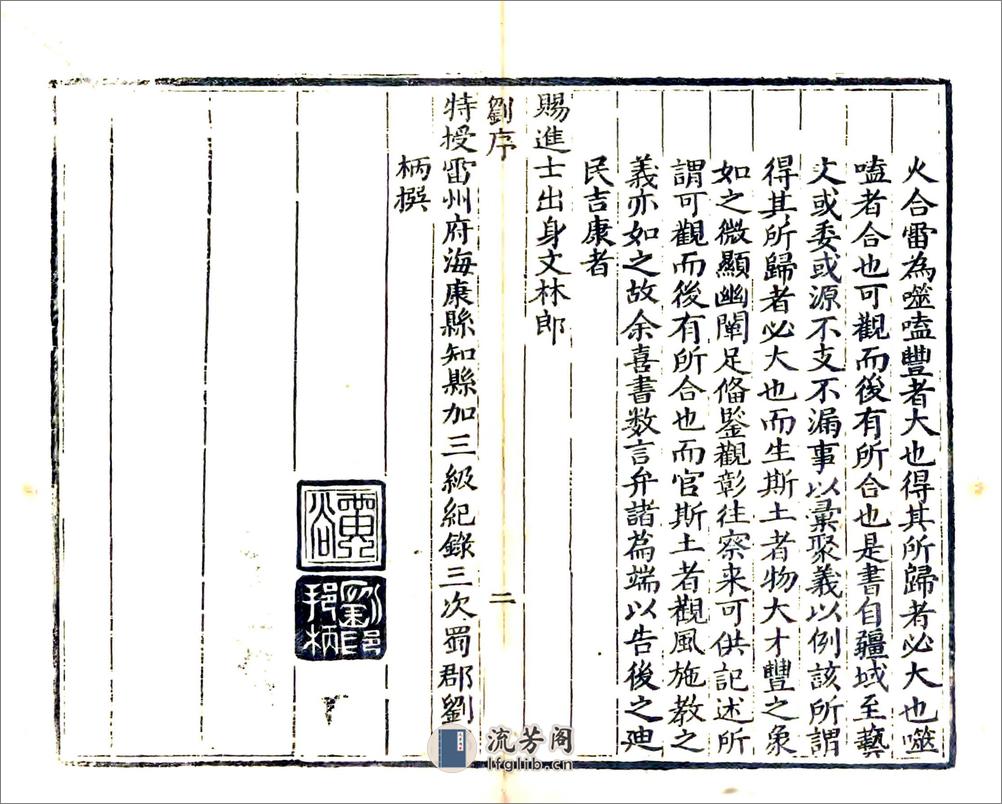 火合雷為噬嗑豐者大也得其所歸者必大也噬
嗑者合也可觀而後有所合也是書自疆域至藝
文或委或源不支不漏事以彙聚義以例該所謂
得其所歸者必大也而生斯土者物大才豐之象
如之微顯幽闡足俻鋻觀彰往察来可供記述所
謂可觀而後有所合也而官斯土者觀風施教之
義亦如之故余喜書数言弁諸篇端以告後之廸
民吉康者
賜進士出身文林郎
劉序
二
特授雷州府海康縣知縣加三級紀錄三次蜀郡劉
柄撰
劉邦柄印
流芳阁
lfglib.cn